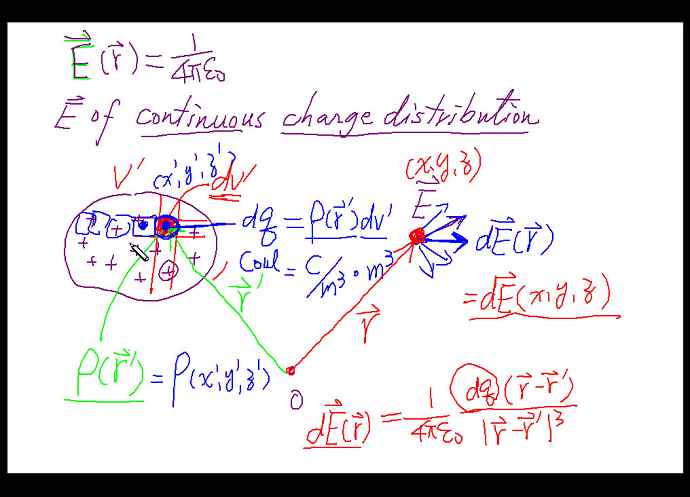 E⃗(r⃗) = 1/4πε₀
E⃗ of continuous charge distribution
V' (x', y', z') dv' (x, y, z)
E⃗
dq = ρ(r⃗')dv' dE⃗(r⃗)
Coul = C/m³ · m³ = dE⃗(x, y, z)
r⃗' r⃗
ρ(r⃗') = ρ(x', y', z')
O
dE⃗(r⃗) = 1/4πε₀ dq(r⃗-r⃗')/|r⃗-r⃗'|³